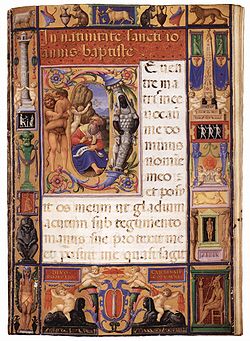 In natiuitate sancti io
annis baptiste
E uen
tre ma
tris mee
uocauit
me do
minus
nomine
meo: 
et posu
it os meum ut gladium
acutum sub tegumento
manus sue protexit me
et posuit me quasi sagit